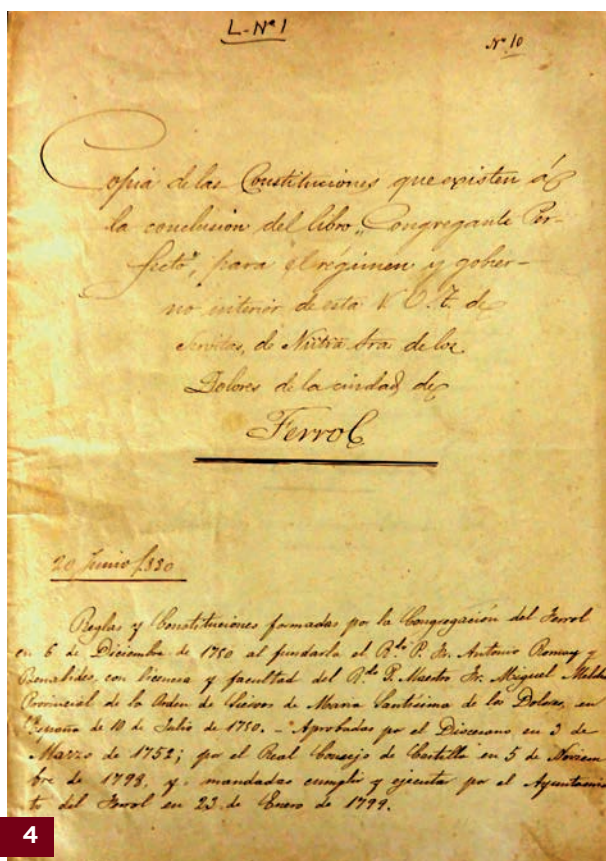 L-Nº 1
Nº 10
Copia de las Constituciones que existen á
la conclusión del libro "Congregante Per-
fecto", para el regimen y gobier-
no interior de esta V. O. T. de
Servitas, de Nuestra Sra. de los
Dolores de la ciudad de
Ferrol
20 Junio 1880
Reglas y Constituciones formadas por la Congregación del Ferrol
en 6 de Diciembre de 1750 al fundarla el Rdo P. Fr. Antonio
con licencia y facultad del Rdo P. Maestro Fr. Miguel
Provincial de la Orden de Siervos de Maria Santisima de los Dolores, en
España de 10 de Julio de 1750. - Aprobadas por el Diocesano en 3 de
Marzo de 1752; por el Real Consejo de Castilla en 5 de Noviem
bre de 1798, y mandadas cumplir y ejecutar por el Ayuntamien
to del Ferrol en 23 de Enero de 1799.
4